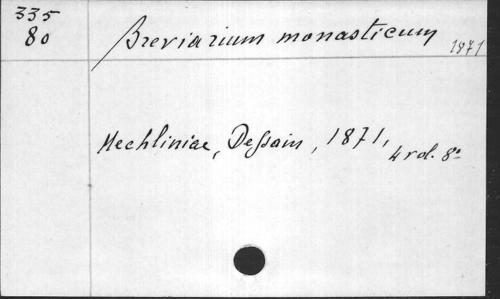 335
80
Breviarium monasticum
1871
Mechliniae, Dessain, 1871,
4 vol. 8°